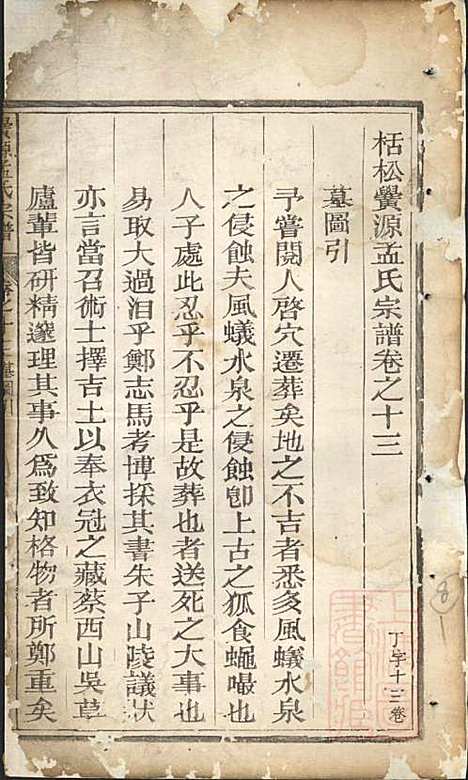 栝松黌源孟氏宗譜卷之十三
墓圖引
予嘗閱人啓穴遷葬矣地之不吉者悉多風蟻水泉
之侵蝕夫風蟻水泉之侵蝕卽上古之狐食蠅嘬也
人子處此忍乎不忍乎是故葬也者送死之大事也
易取大過洎乎鄭志馬考博採其書朱子山陵議狀
亦言當召術士擇吉土以奉衣冠之藏蔡西山吳草
廬輩皆研精邃理其事久爲致知格物者所鄭重矣
丁字十三卷
黌源孟氏宗譜
卷之十三墓圖引